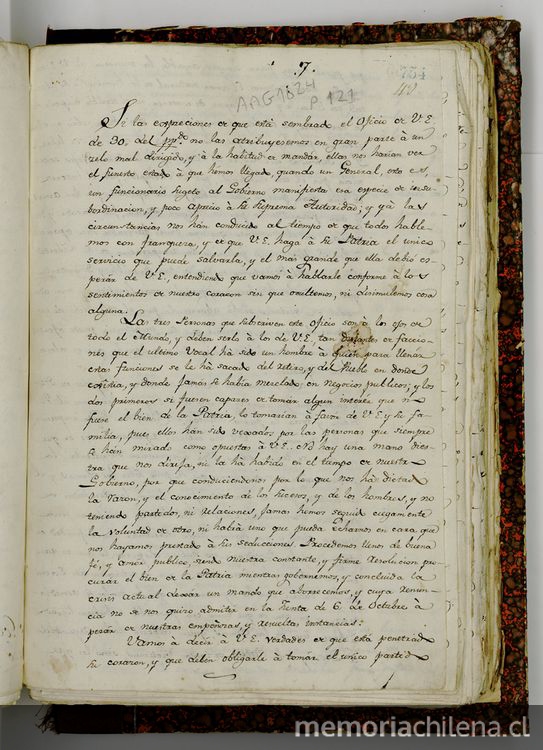 7.
734
40
AAG 1824
P. 121
Si las expreciones de que está sembrado el Oficio de V.E.
de 30. del pp.do no las atribuyesemos en gran parte à un
zelo mal dirigido, y à la habitud de mandar, ellas nos harian ver
el funesto estado à que hemos llegado, quando un General, esto es,
un funcionario sugeto al Gobierno manifiesta esa especie de insu-
bordinacion, y poco aprecio à la Suprema Autoridad; y yà las
circunstancias nos han conducido al tiempo de que todos hable-
mos con franqueza, y de que V.E. haga à su Patria el unico
servicio que puede salvarla, y el mas grande que ella debiò es-
perar de V.E., entendiendo que vamos à hablarle conforme à los
sentimientos de nuestro corazon sin que omitemos, ni disimulemos cosa
alguna.
Las tres Personas que subscriven este Oficio son à los ojos de
todo el Mundo, y deben serlo à los de V.E. tan distantes de faccio-
nes que el ultimo Vocal ha sido un hombre à quien para llenar
estas funciones se le ha sacado del retiro, y del Pueblo en donde
exîstia, y donde jamas se habia mezclado en negocios publicos; y los
dos primeros si fuesen capaces de tomar algun interes que no
fuese el bien de la Patria, lo tomarian à favor de V.E. y su fa-
milia, pues ellos han sido vexados por las personas que siempre
se han mirado como opuestas à V.E. No hay una mano dies-
tra que nos dirija, ni la ha habido en el tiempo de nuestro
Gobierno, por que conduciendonos por lo que nos ha dictado
la razon, y el conocimiento de los sucesos, y de los hombres, y no
teniendo partidos, ni relaciones, jamas hemos seguido ciegamente
la voluntad de otro, ni habrà uno que pueda echarnos en cara que
nos hayamos prestado à sus seducciones. Procedemos llenos de buena
fé, y amor publico, siendo nuestra constante, y firme resolucion pro-
curar el bien de la Patria mientras gobernemos, y concluida la
crisis actual dexar un mando que aborrecemos, y cuya renun-
cia no se nos quiso admitir en la Junta de 6 de Octubre à
pesar de nuestras empeñosas, y resueltas instancias.
Vamos à decir à V.E. verdades de que està penetrado
su corazon, y que deben obligarle à tomar el unico partido
memoriachilena.cl